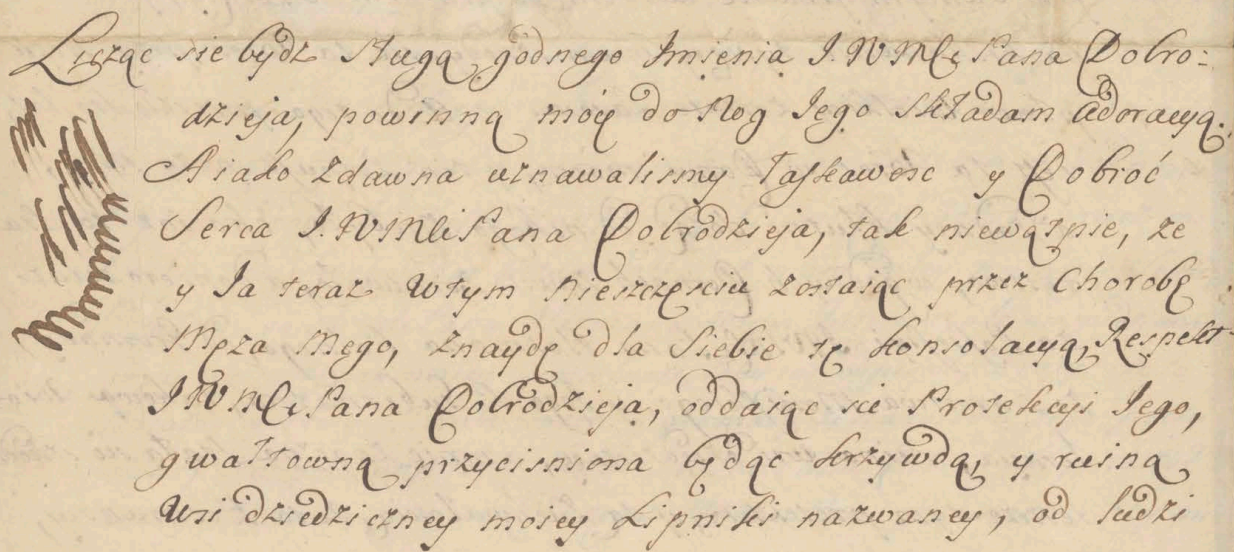 Licząc sie bydz Sługą godnego Jmienia J.WMCi Pana Dobro:
dzieja, powinną moię do Nog Jego Składam adoracyą.
A iako zdawna uznawalismy łaskawosc y Dobroć
Serca J.WMCi Pana Dobrodzieja, tak niewątpie, ze
y Ja teraz wtym Nieszczęsciu zostaiąc przez Chorobę
Męza Mego, znaydę dla Siebie tę konsolacyą, Respekt
JWMCi Pana Dobrodzieja, oddaiąc sie Protekcyi Jego,
gwałtowną przycisniona będąc krzywdą, y ruiną
Wsi dziedziczney moiey Lipniki nazwaney, od ludzi